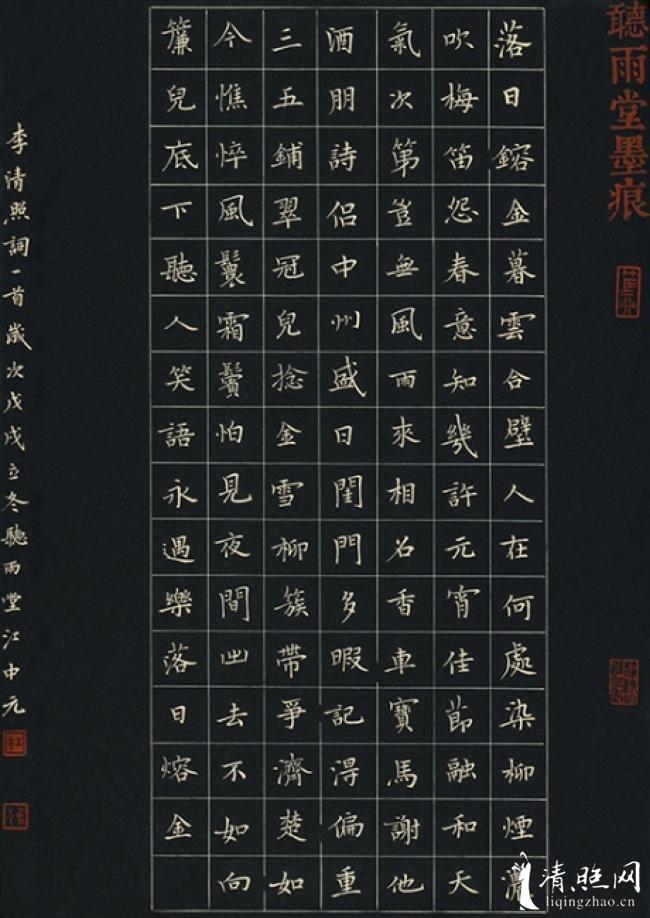 聽雨堂墨痕
落日鎔金暮雲合璧人在何處染柳煙濃
吹梅笛怨春意知幾許元宵佳節融和天
氣次第豈無風雨來相召香車寶馬謝他
酒朋詩侶中州盛日閨門多暇記得偏重
三五鋪翠冠兒捻金雪柳簇帶爭濟楚如
今憔悴風鬟霜鬢怕見夜間出去不如向
簾兒底下聽人笑語永遇樂落日熔金
李清照詞一首歲次戊戌立冬聽雨堂江申元
清照网
liqingzhao.cn